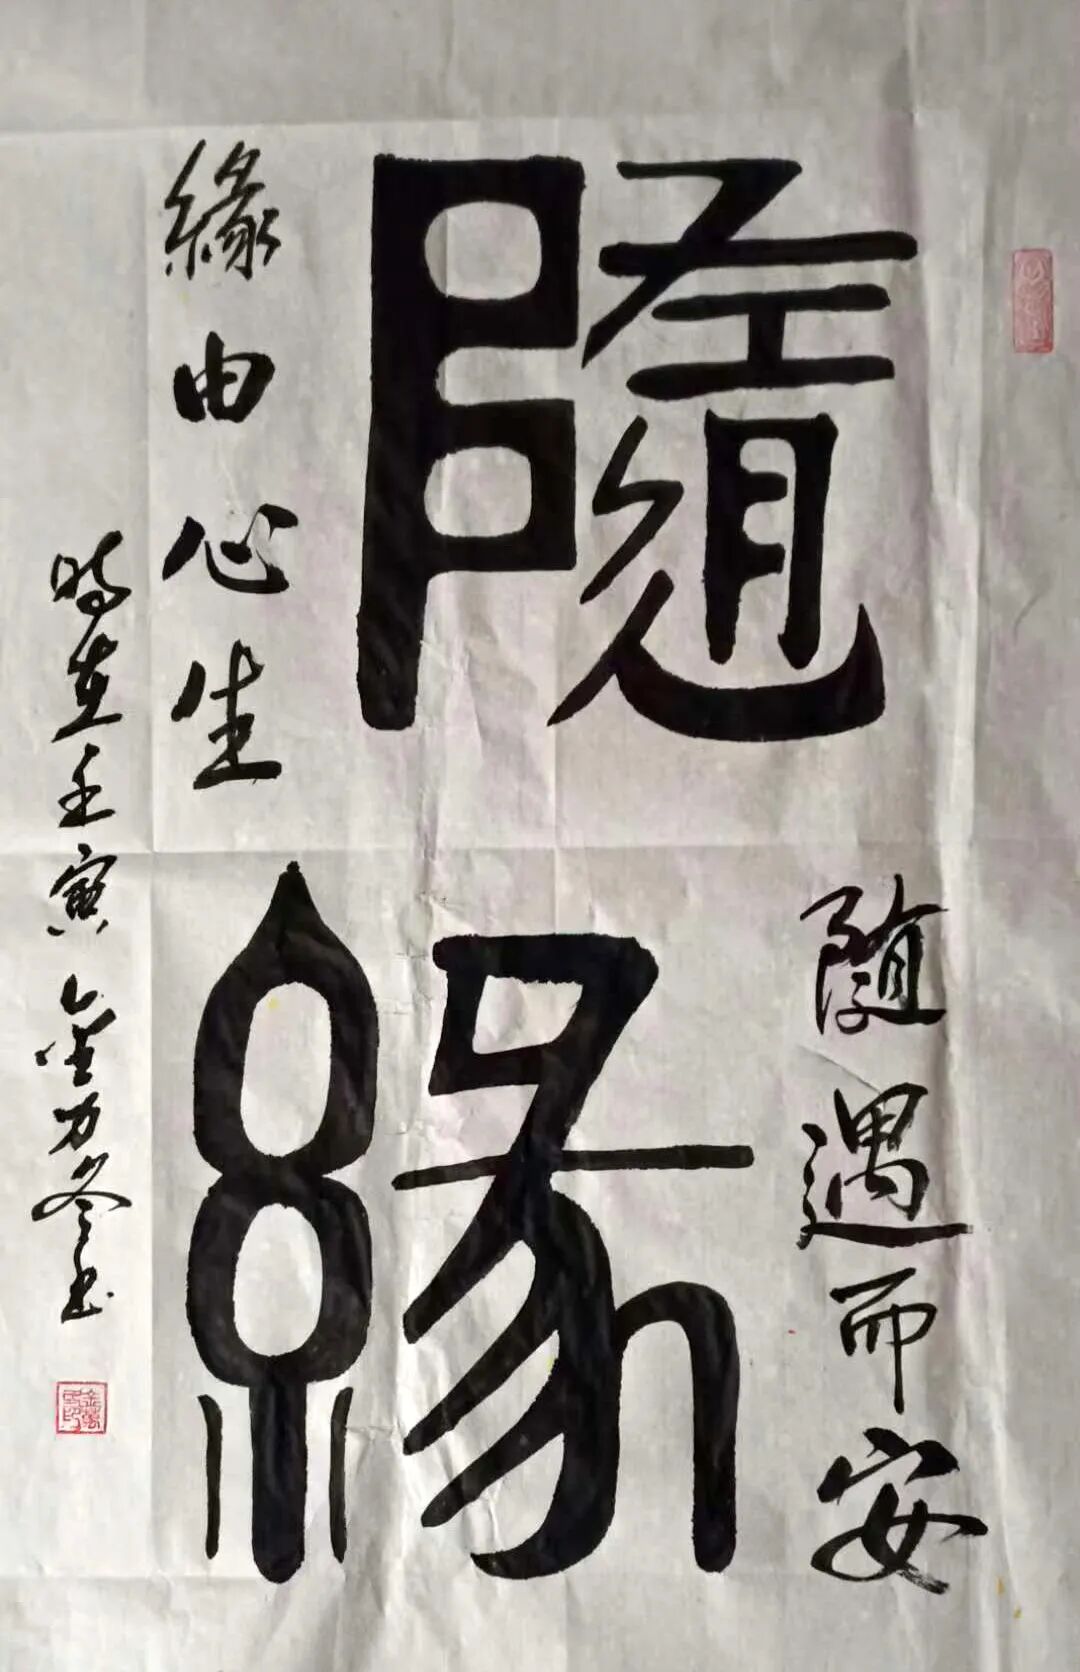 隨緣
隨遇而安
緣由心生
時在壬寅金万冬书